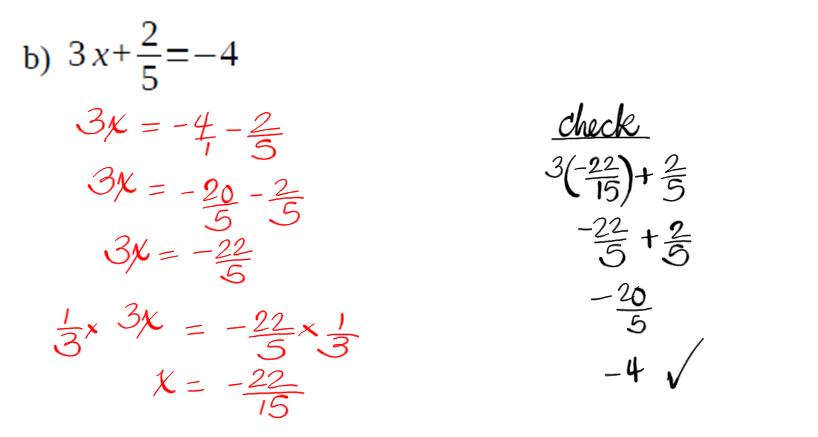 b) 3x+2/5=-4
3x = -4/1 - 2/5
3x = -20/5 - 2/5
3x = -22/5
1/3 × 3x = -22/5 × 1/3
x = -22/15
check
3(-22/15) + 2/5
-22/5 + 2/5
-20/5
-4 ✓